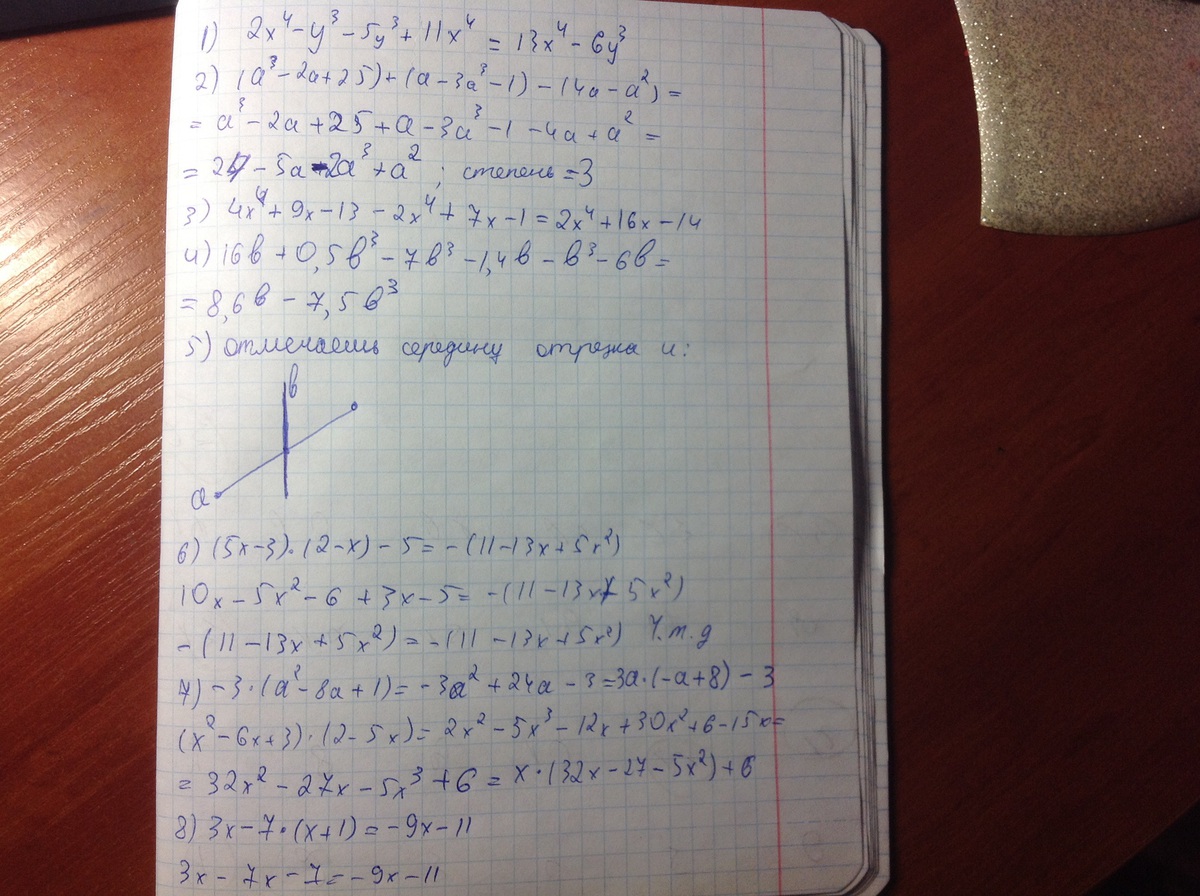 1) 2x⁴ - y³ - 5y³ + 11x⁴ = 13x⁴ - 6y³
2) (a³ - 2a + 25) + (a - 3a³ - 1) - (4a - a²) =
= a³ - 2a + 25 + a - 3a³ - 1 - 4a + a² =
= 24 - 5a - 2a³ + a² ; степень = 3
3) 4x⁴ + 9x - 13 - 2x⁴ + 7x - 1 = 2x⁴ + 16x - 14
4) 16b + 0,5b³ - 7b³ - 1,4b - b³ - 6b =
= 8,6b - 7,5b³
5) отмечаешь середину отрезка и:
b
a
6) (5x-3)·(2-x) - 5 = -(11-13x+5x²)
10x - 5x² - 6 + 3x - 5 = -(11-13x+5x²)
-(11-13x+5x²) = -(11-13x+5x²) Ч.т.д
7) -3·(a²-8a+1) = -3a² + 24a - 3 = 3a·(-a+8) - 3
(x²-6x+3)·(2-5x) = 2x² - 5x³ - 12x + 30x² + 6 - 15x =
= 32x² - 27x - 5x³ + 6 = x·(32x - 27 - 5x²) + 6
8) 3x - 7·(x+1) = -9x - 11
3x - 7x - 7 = -9x - 11